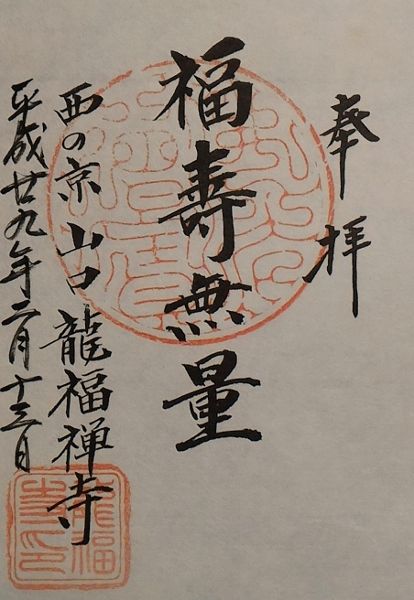 奉拝
福壽無量
西の京 山口 龍福禅寺
平成廿九年二月十三日
龍福寺印